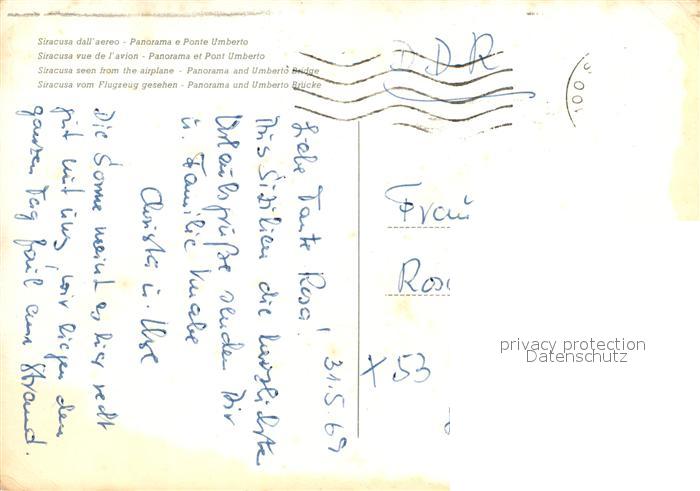 Siracusa dall'aereo - Panorama e Ponte Umberto
Siracusa vue de l'avion - Panorama et Pont Umberto
Siracusa seen from the airplane - Panorama and Umberto Bridge
Siracusa vom Flugzeug gesehen - Panorama und Umberto Brücke
DDR
31.5.69
Liebe Tante Rosa!
Aus Sizilien die herzlichsten
Urlaubsgrüße senden Dir
u. Familie Knabe
Christa u. Uwe
Die Sonne meint es hier recht
gut mit uns, wir liegen den
ganzen Tag faul am Strand.
Frau
Rosa
X 53
privacy protection
Datenschutz